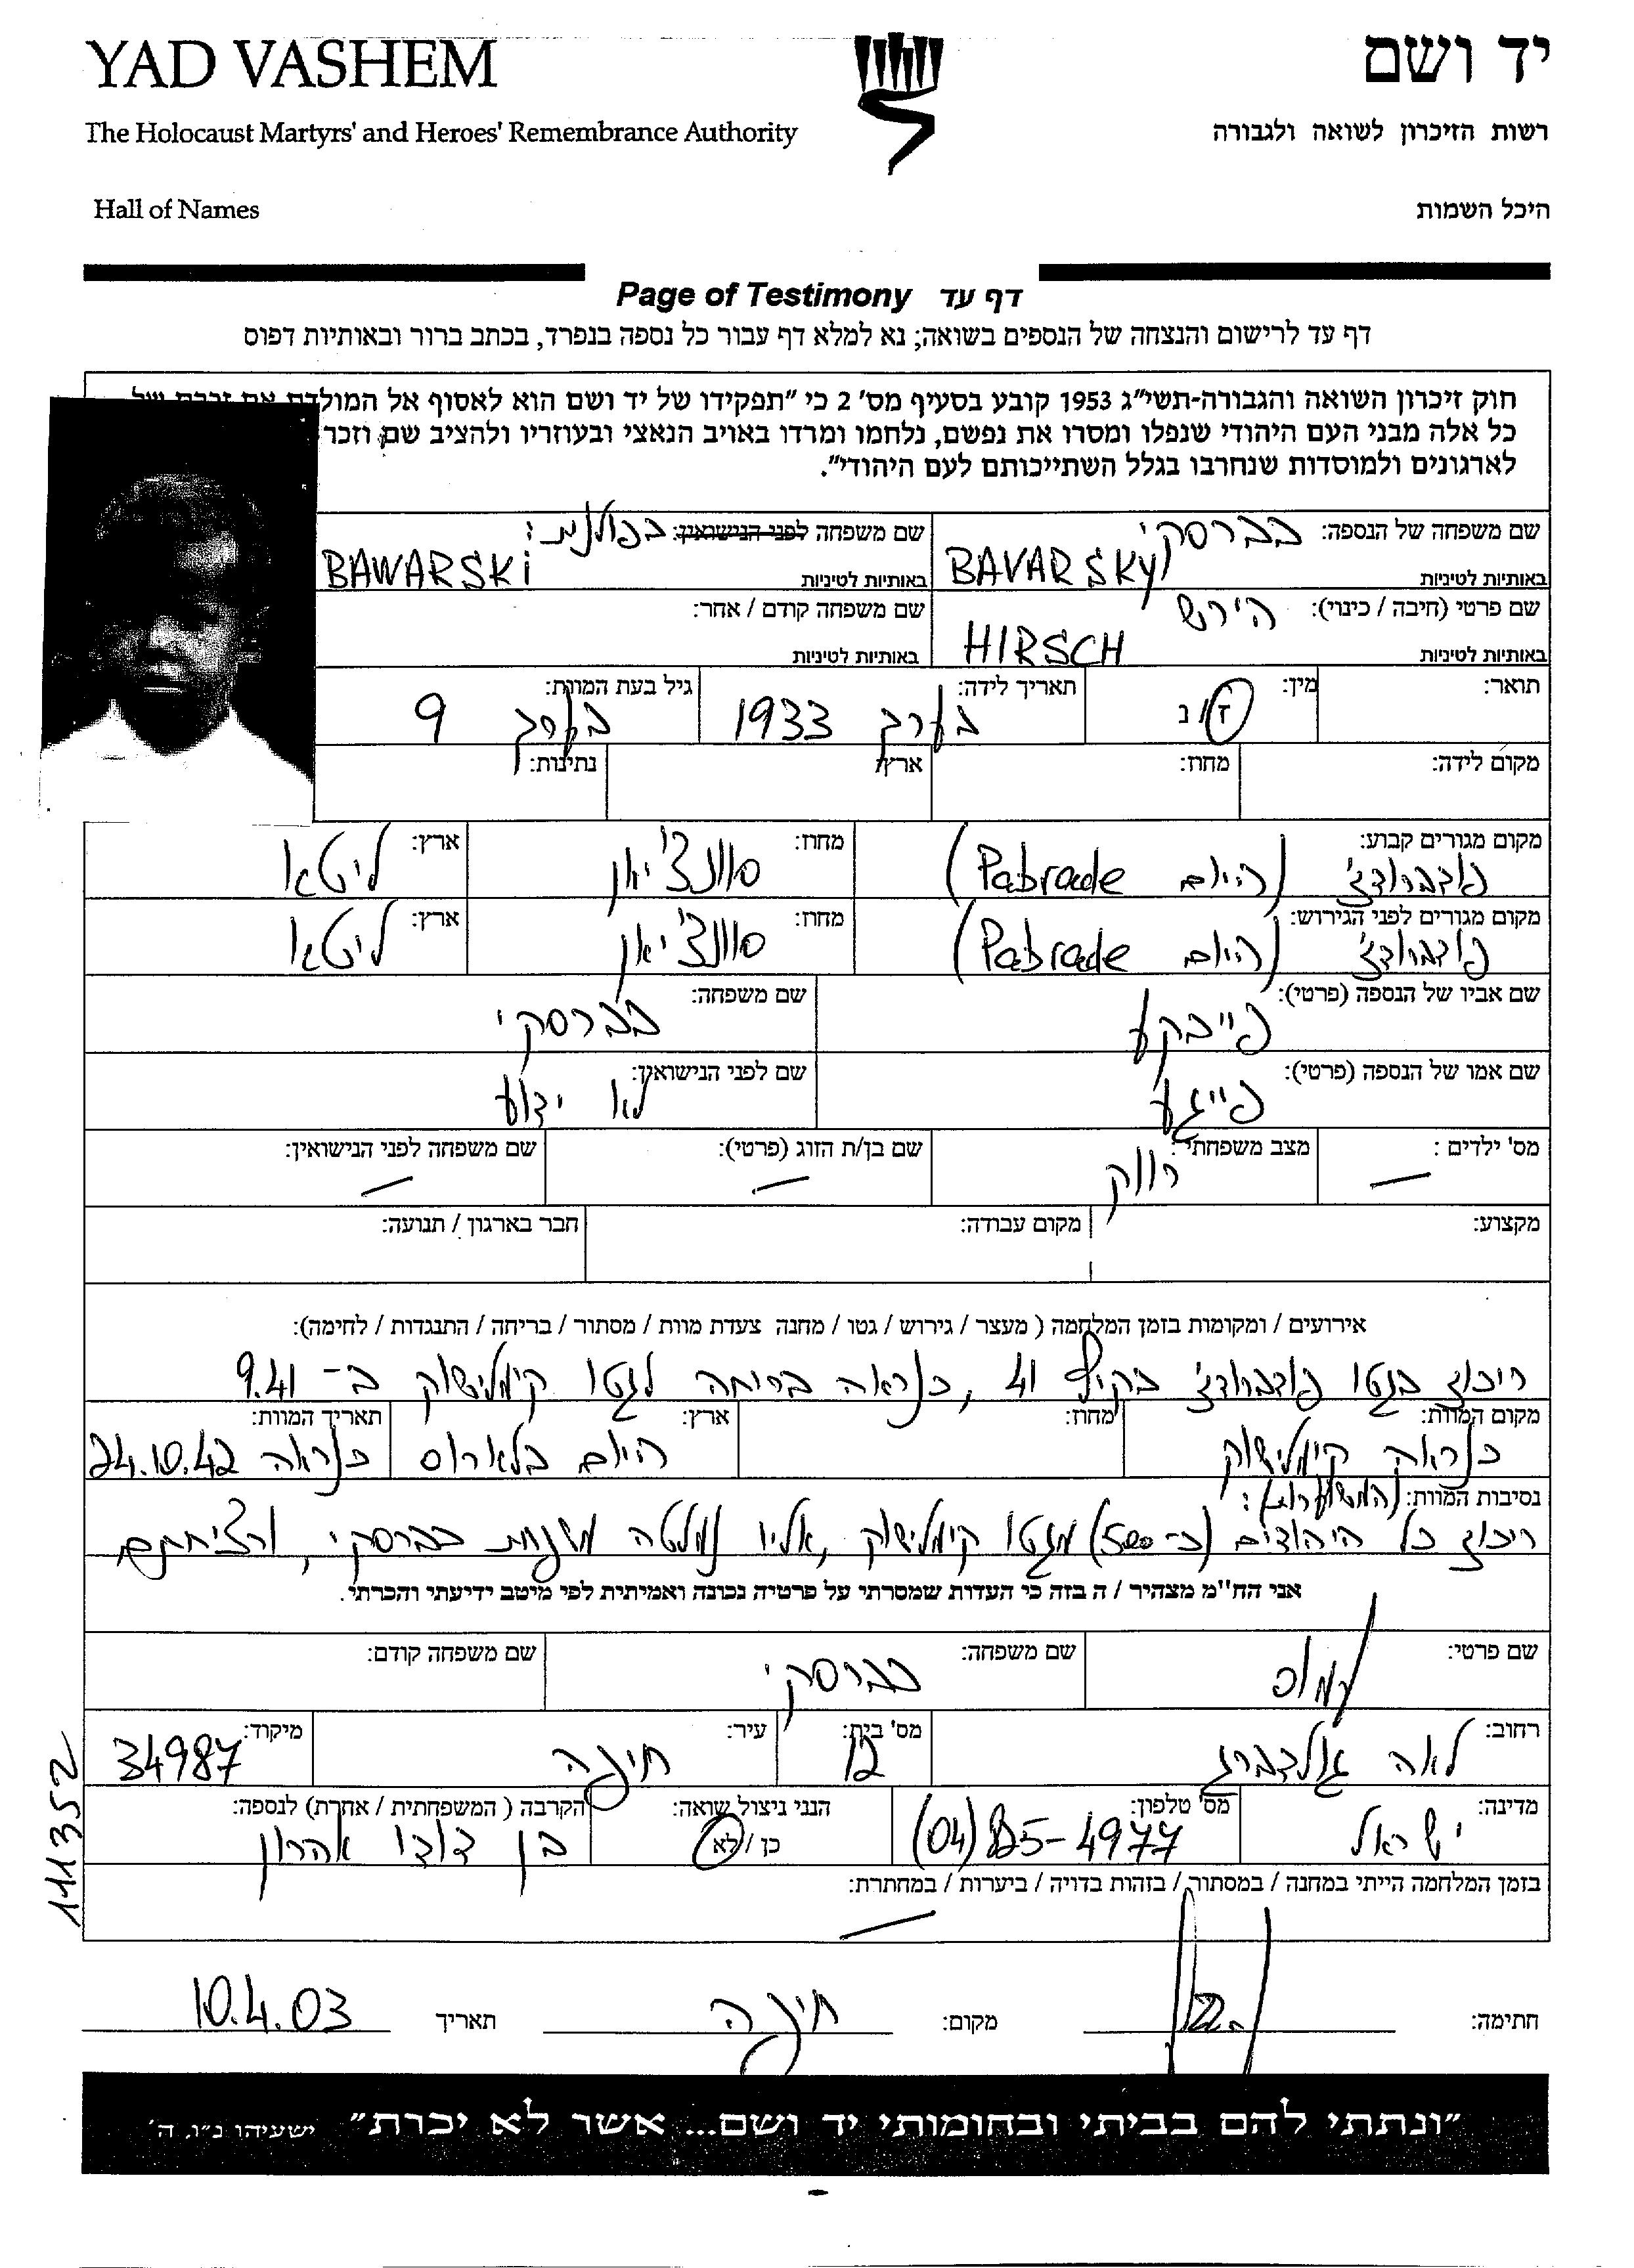 YAD VASHEM
יד ושם
The Holocaust Martyrs' and Heroes' Remembrance Authority
רשות הזיכרון לשואה ולגבורה
Hall of Names
היכל השמות
Page of Testimony דף עד
דף עד לרישום והנצחה של הנספים בשואה; נא למלא דף עבור כל נספה בנפרד, בכתב ברור ובאותיות דפוס
חוק זיכרון השואה והגבורה-תשי"ג 1953 קובע בסעיף מס' 2 כי "תפקידו של יד ושם הוא לאסוף אל המולדת את זכרם של
כל אלה מבני העם היהודי שנפלו ומסרו את נפשם, נלחמו ומרדו באויב הנאצי ובעוזריו ולהציב שם וזכר
לארגונים ולמוסדות שנחרבו בגלל השתייכותם לעם היהודי".
שם משפחה של הנספה: בברסקי שם משפחה לפני הנישואין: בפולנית:
באותיות לטיניות BAVARSKY באותיות לטיניות BAWARSKI
שם פרטי (חיבה / כינוי): הירש שם משפחה קודם / אחר:
באותיות לטיניות HIRSCH באותיות לטיניות
תואר: מין: תאריך לידה: גיל בעת המוות:
ז / נ בערך 1933 בערך 9
מקום לידה: מחוז: ארץ: נתינות:
מקום מגורים קבוע: מחוז: ארץ:
פודברודז' (היום Pabrade) סוונצ'יאן ליטא
מקום מגורים לפני הגירוש: מחוז: ארץ:
פודברודז' (היום Pabrade) סוונצ'יאן ליטא
שם אביו של הנספה (פרטי): שם משפחה:
פייבקע בברסקי
שם אמו של הנספה (פרטי): שם לפני הנישואין:
פייגע לא ידוע
מס' ילדים : מצב משפחתי : שם בן/ת הזוג (פרטי): שם משפחה לפני הנישואין:
— רווק — —
מקצוע: מקום עבודה: חבר בארגון / תנועה:
אירועים / ומקומות בזמן המלחמה ( מעצר / גירוש / גטו / מחנה צעדת מוות / מסתור / בריחה / התנגדות / לחימה):
ריכוז בגטו פודברודז' בקיץ 41, כנראה בריחה לגטו קימלישוק ב- 9.41
מקום המוות: מחוז: ארץ: תאריך המוות:
כנראה קימלישוק היום בלארוס כנראה 24.10.42
נסיבות המוות: (המשוערות):
ריכוז כל היהודים (כ-500) מגטו קימלישוק, אליו נמלטה משפחת בברסקי, ורציחתם
אני הח"מ מצהיר / ה בזה כי העדות שמסרתי על פרטיה נכונה ואמיתית לפי מיטב ידיעתי והכרתי.
שם פרטי: שם משפחה: שם משפחה קודם:
בברסקי
רחוב: מס' בית: עיר: מיקוד:
לאה גולדברג 12 חיפה 34987
מדינה: מס' טלפון: הנני ניצול שואה: הקרבה ( המשפחתית / אחרת) לנספה:
ישראל (04)825-4977 כן / לא בן דודו אהרון
בזמן המלחמה הייתי במחנה / במסתור / בזהות בדויה / ביערות / במחתרת:
—
חתימה: מקום: חיפה תאריך 10.4.03
"ונתתי להם בביתי ובחומותי יד ושם... אשר לא יכרת" ישעיהו נ"ו, ה'
111352